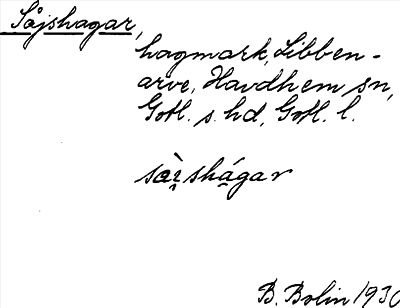 Såjshagar,
hagmark, Libben-
arve, Havdhem sn,
Gotl. s. hd, Gotl. l.
sàı̯shágar
B. Bolin 1930